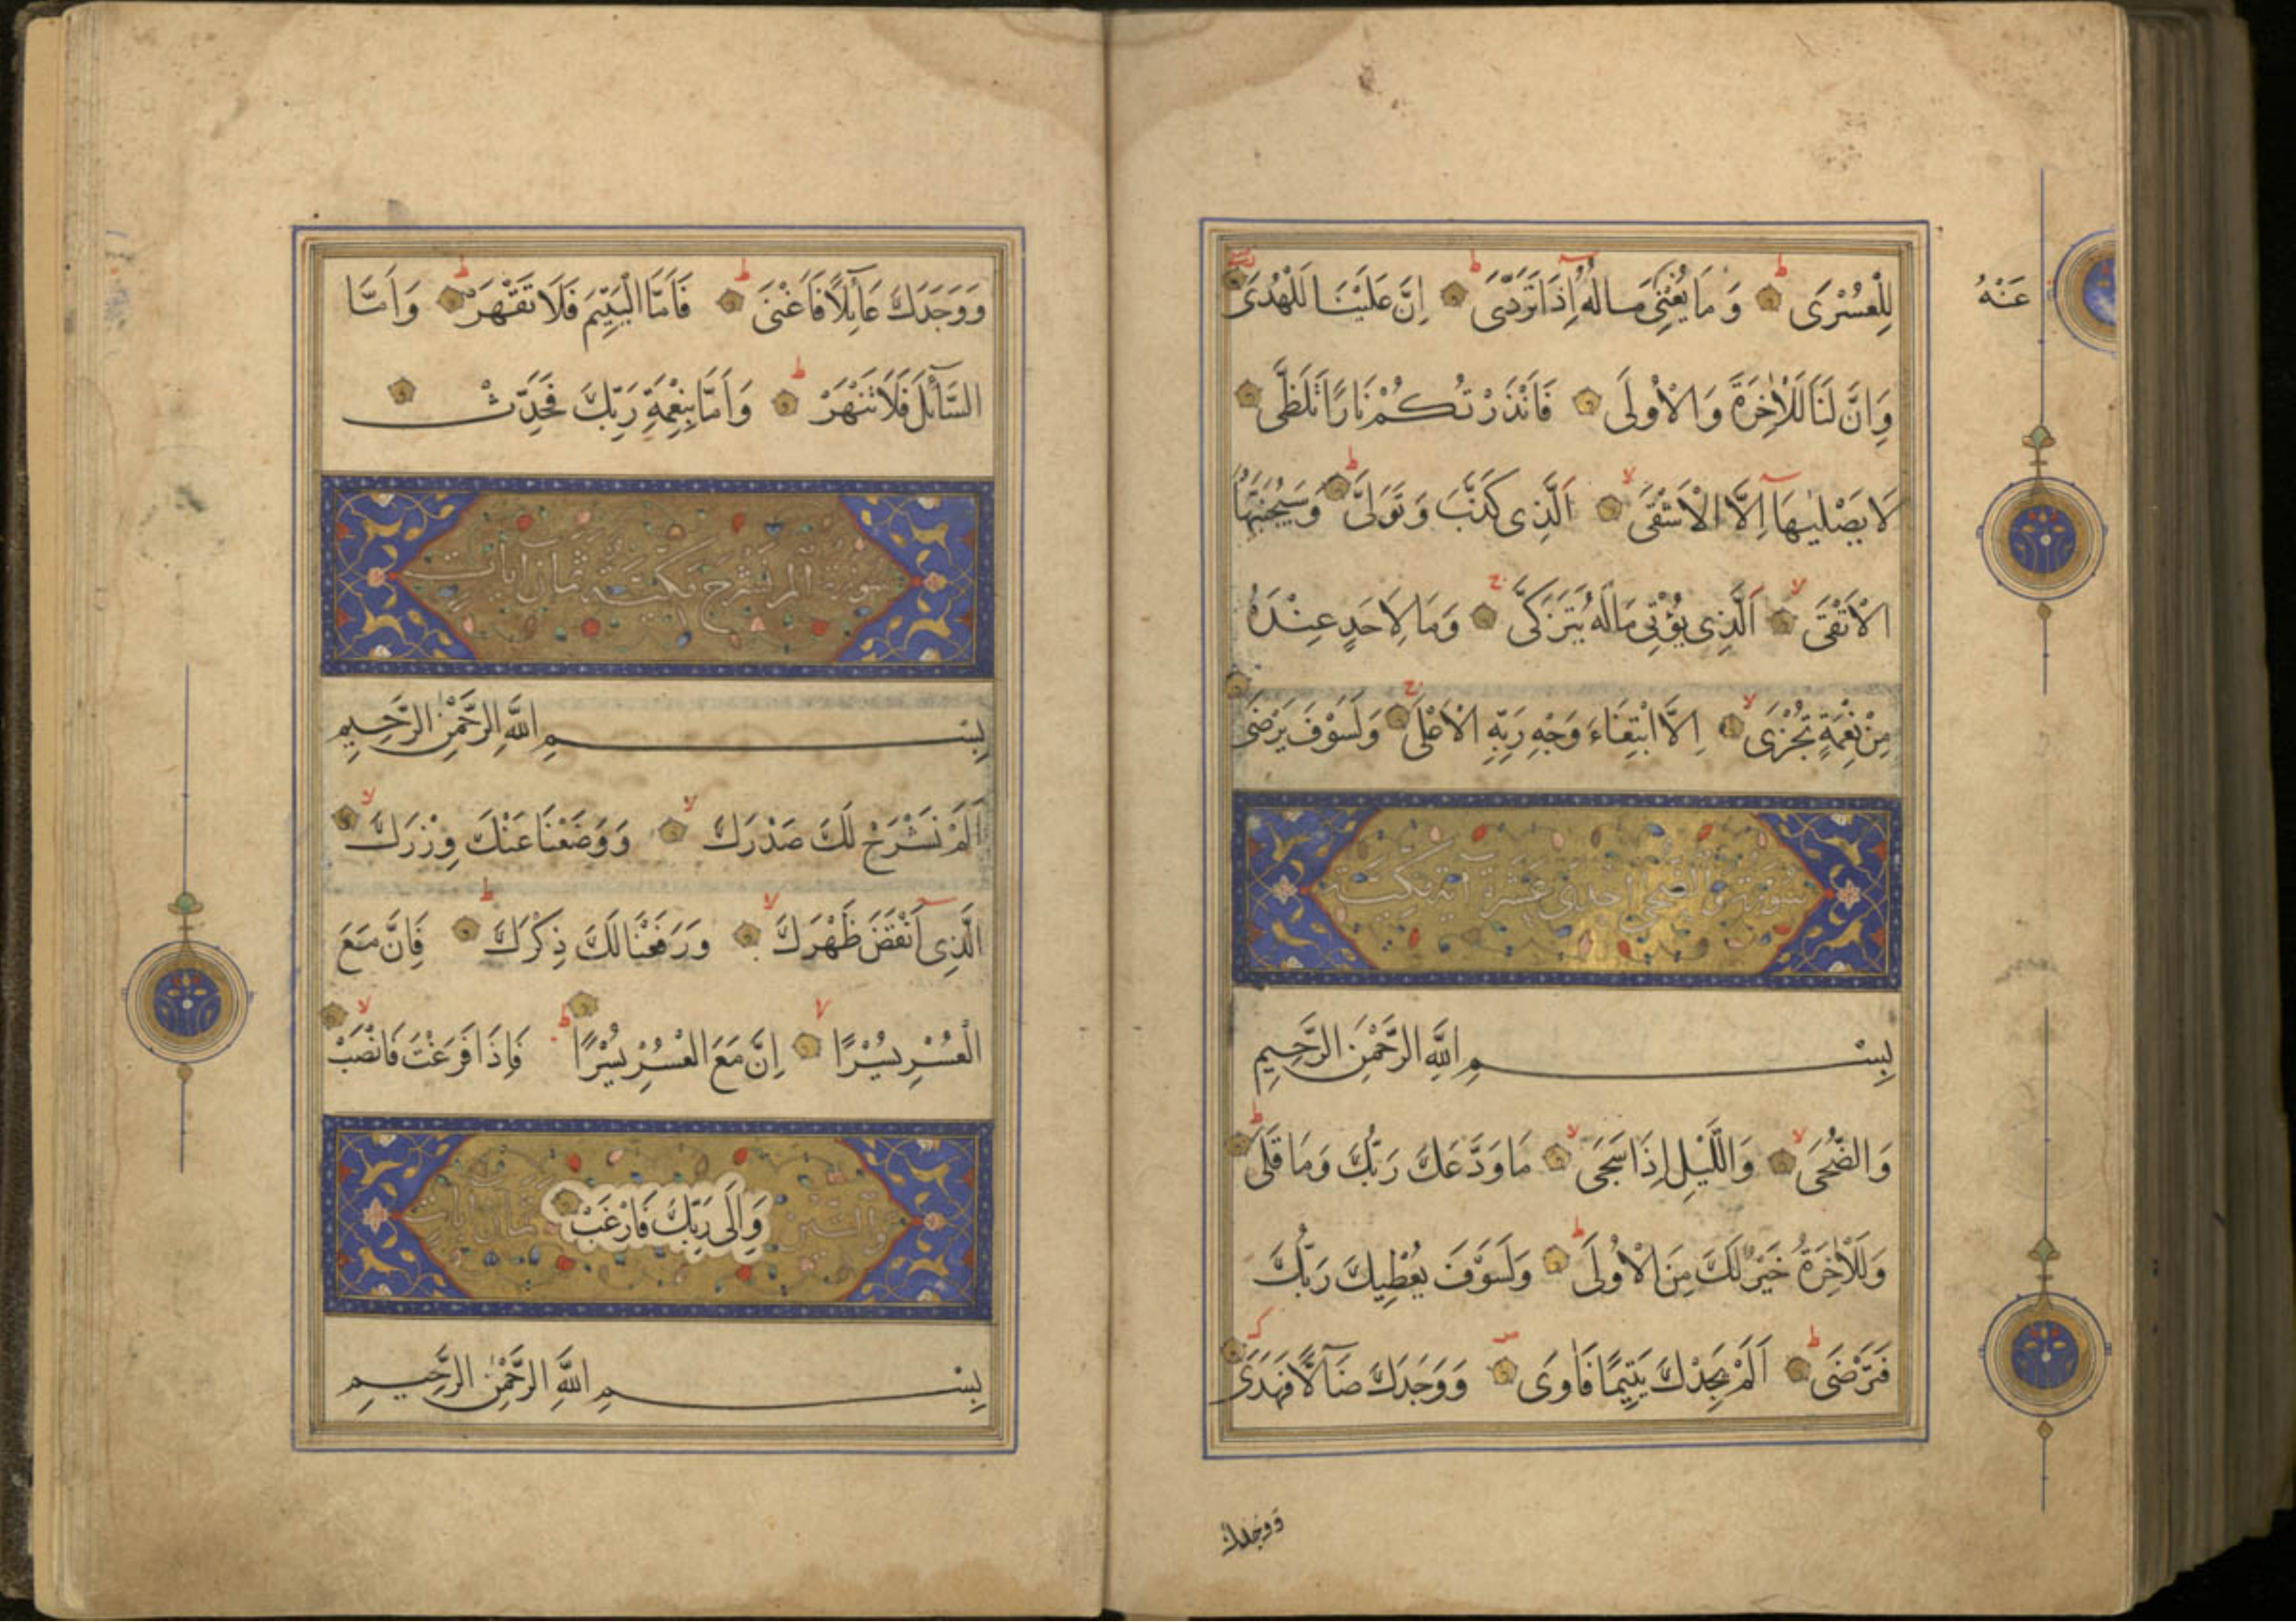 لِلْعُسْرَى وَمَا يُغْنِي عَنْهُ مَالُهُ إِذَا تَرَدَّى إِنَّ عَلَيْنَا لَلْهُدَى
وَاِنَّ لَنَا لَلْاٰخِرَةَ وَالْاُولَى فَاَنْذَرْتُكُمْ نَارًا تَلَظَّى
لَا يَصْلٰيهَآ اِلَّا الْاَشْقَى اَلَّذِى كَذَّبَ وَتَوَلَّى وَسَيُجَنَّبُهَا
الْاَتْقَى اَلَّذِى يُؤْتِى مَالَهُ يَتَزَكَّى وَمَا لِاَحَدٍ عِنْدَهُ
مِنْ نِعْمَةٍ تُجْزَى اِلَّا ابْتِغَاءَ وَجْهِ رَبِّهِ الْاَعْلَى وَلَسَوْفَ يَرْضَى
سُورَةُ وَالضُّحَى اِحْدَى عَشْرَةَ آيَة مَكِّيَّة
بِسْمِ اللَّهِ الرَّحْمَنِ الرَّحِيمِ
وَالضُّحَى وَاللَّيْلِ إِذَا سَجَى مَا وَدَّعَكَ رَبُّكَ وَمَا قَلَى
وَلَلْاٰخِرَةُ خَيْرٌ لَكَ مِنَ الْاُولَى وَلَسَوْفَ يُعْطِيكَ رَبُّكَ
فَتَرْضَى اَلَمْ يَجِدْكَ يَتِيمًا فَاٰوَى وَوَجَدَكَ ضَآلًّا فَهَدَى
ووجدك
وَوَجَدَكَ عَآئِلًا فَاَغْنَى فَاَمَّا الْيَتِيمَ فَلَا تَقْهَرْ وَاَمَّا
السَّآئِلَ فَلَا تَنْهَرْ وَاَمَّا بِنِعْمَةِ رَبِّكَ فَحَدِّثْ
سُورَةُ اَلَمْ نَشْرَحْ مَكِّيَّةٌ ثَمَان آيَاتٍ
بِسْمِ اللَّهِ الرَّحْمٰنِ الرَّحِيمِ
اَلَمْ نَشْرَحْ لَكَ صَدْرَكَ وَوَضَعْنَا عَنْكَ وِزْرَكَ
الَّذِى اَنْقَضَ ظَهْرَكَ وَرَفَعْنَا لَكَ ذِكْرَكَ فَاِنَّ مَعَ
الْعُسْرِ يُسْرًا اِنَّ مَعَ الْعُسْرِ يُسْرًا فَاِذَا فَرَغْتَ فَانْصَبْ
وَاِلَى رَبِّكَ فَارْغَبْ
وَالتّين ثمان آيات
بِسْمِ اللَّهِ الرَّحْمٰنِ الرَّحِيمِ